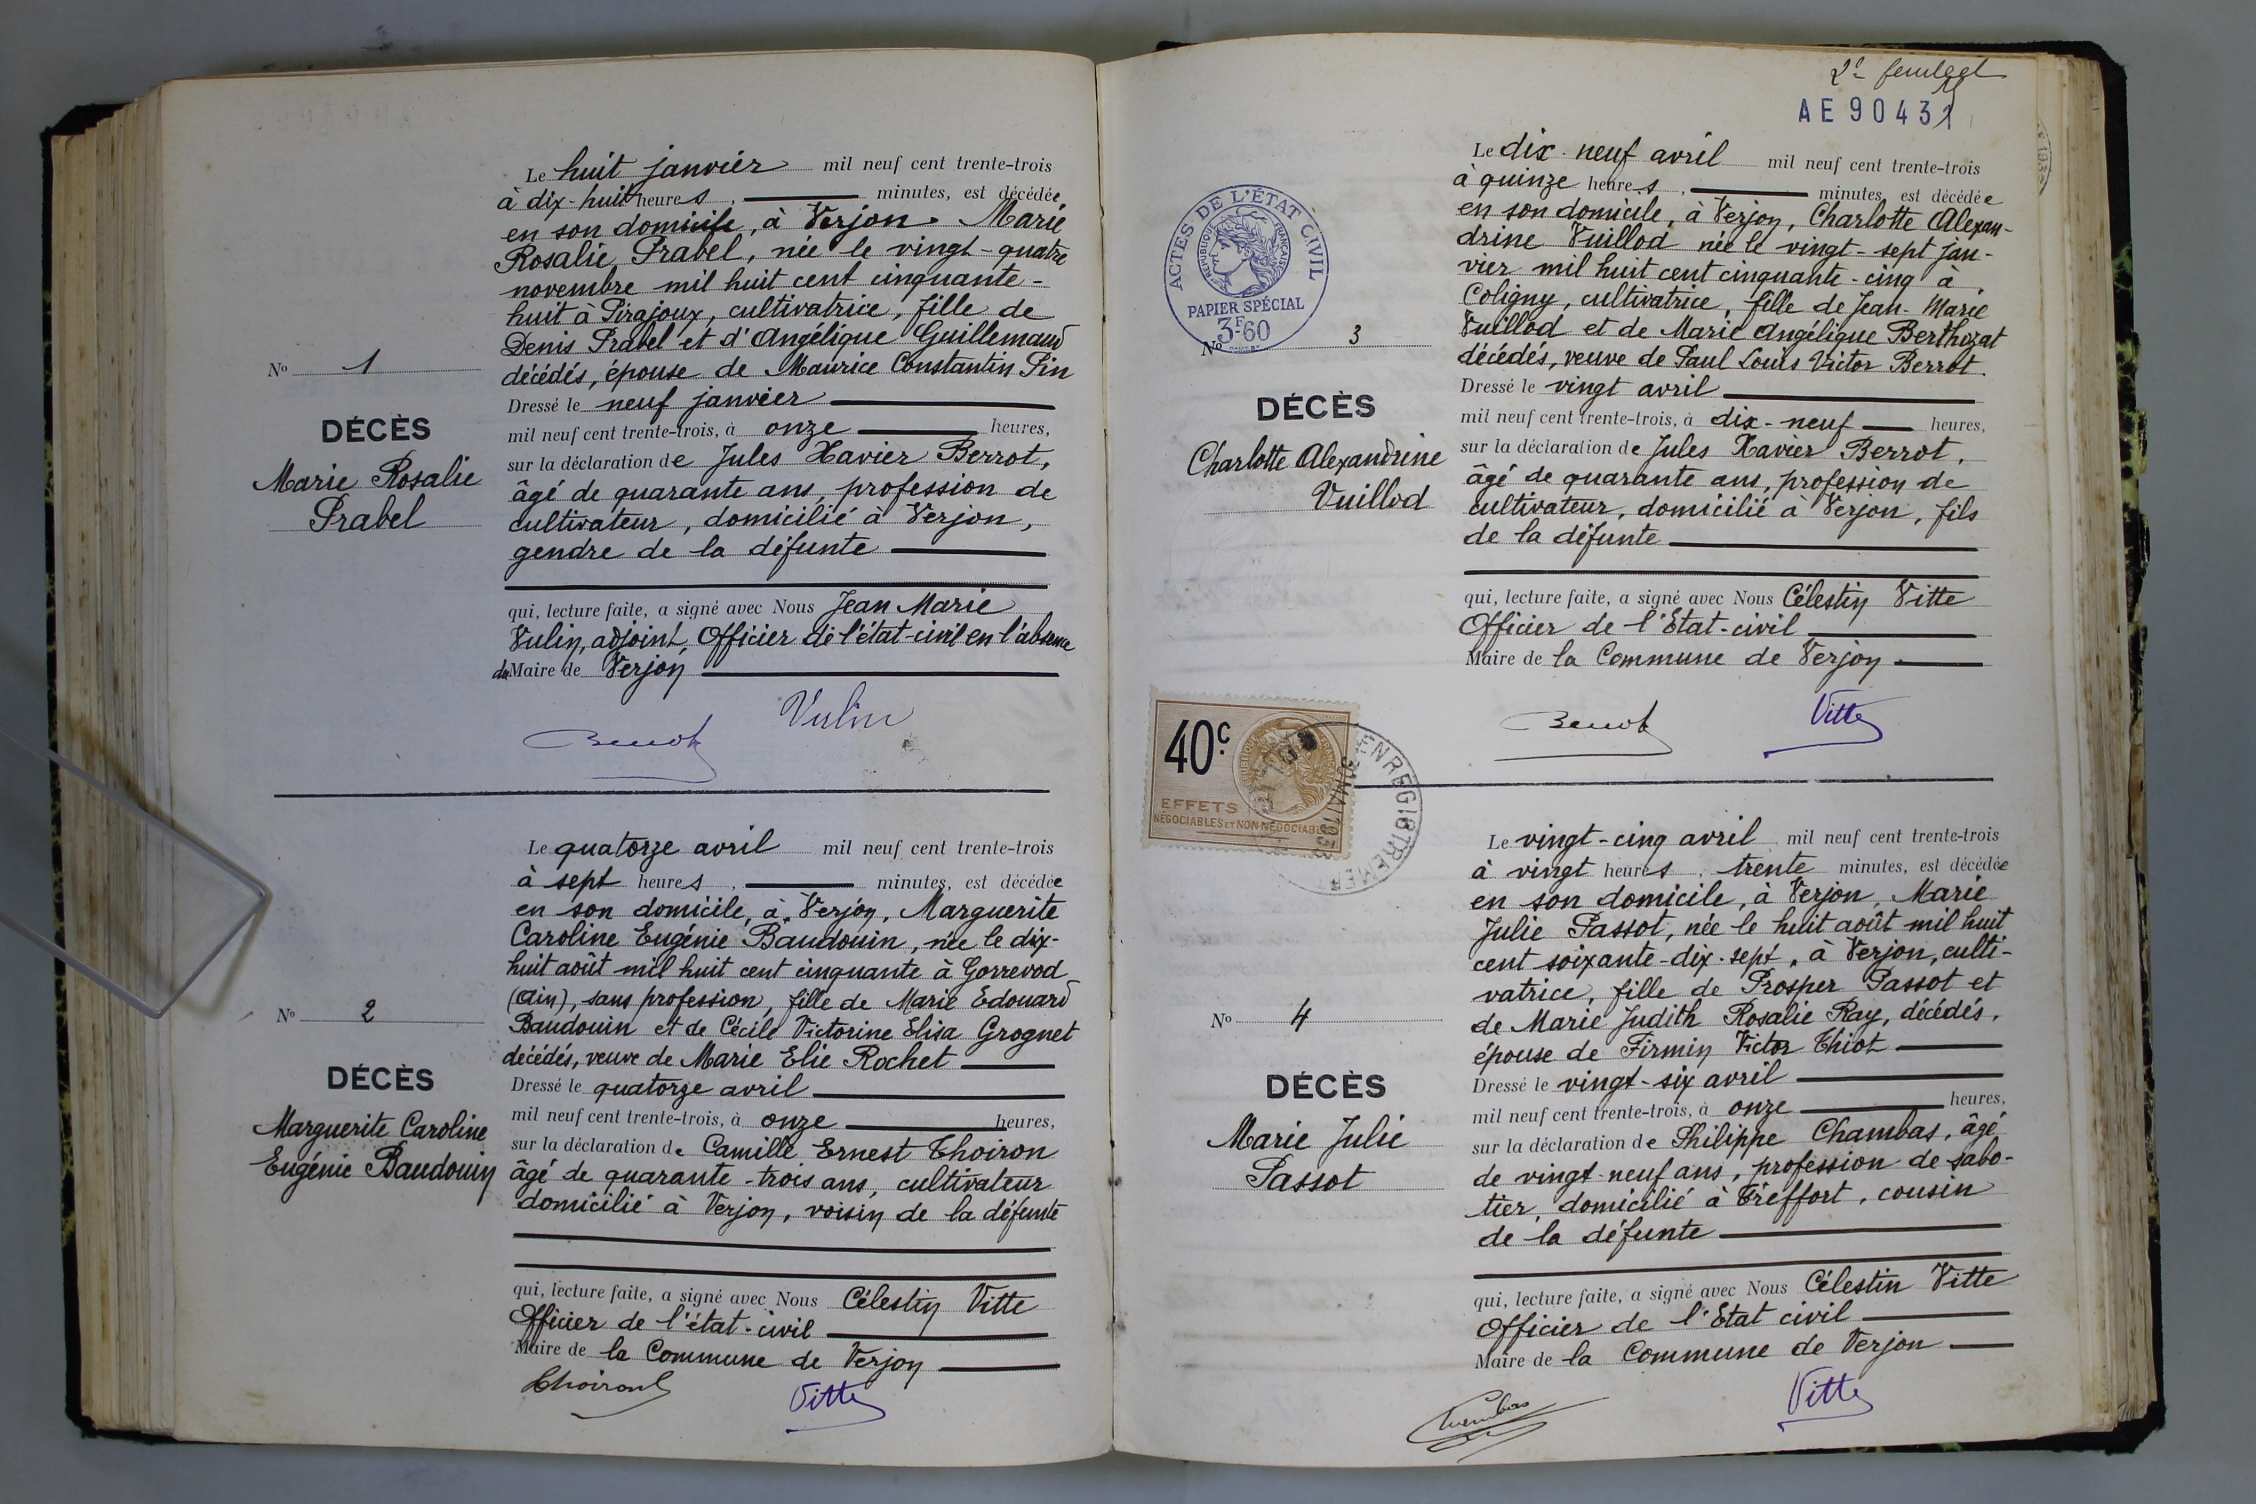 Le huit janvier mil neuf cent trente-trois
à dix-huit heures, minutes, est décédée
en son domicile, à Verjon. Marie
Rosalie Prabel, née le vingt-quatre
novembre mil huit cent cinquante-
huit à Pirajoux, cultivatrice, fille de
Denis Prabel et d'Angélique Guillemaud
décédés, épouse de Maurice Constantin Pin
Dressé le neuf janvier
mil neuf cent trente-trois, à onze heures,
sur la déclaration de Jules Xavier Berrot,
âgé de quarante ans, profession de
cultivateur, domicilié à Verjon,
gendre de la défunte
qui, lecture faite, a signé avec Nous Jean Marie
Vulin, adjoint, Officier de l'état-civil en l'absence
du Maire de Verjon
Vulin
Berrot
No 1
DÉCÈS
Marie Rosalie
Prabel
Le quatorze avril mil neuf cent trente-trois
à sept heures, minutes, est décédée
en son domicile, à Verjon, Marguerite
Caroline Eugénie Baudouin, née le dix-
huit août mil huit cent cinquante à Gorrevod
(Ain), sans profession, fille de Marie Edouard
Baudouin et de Cécile Victorine Elisa Grognet
décédés, veuve de Marie Elie Rochet
Dressé le quatorze avril
mil neuf cent trente-trois, à onze heures,
sur la déclaration de Camille Ernest Thoiron
âgé de quarante-trois ans, cultivateur
domicilié à Verjon, voisin de la défunte
qui, lecture faite, a signé avec Nous Célestin Vitte
Officier de l'état-civil
Maire de la Commune de Verjon
Thoiron
Vitte
No 2
DÉCÈS
Marguerite Caroline
Eugénie Baudouin
2e feuillet
AE 90431
ACTES DE L'ÉTAT CIVIL
RÉPUBLIQUE FRANÇAISE
PAPIER SPÉCIAL
3F60
Le dix-neuf avril mil neuf cent trente-trois
à quinze heures, minutes, est décédée
en son domicile, à Verjon, Charlotte Alexan-
drine Vuillod née le vingt-sept jan-
vier mil huit cent cinquante-cinq à
Coligny, cultivatrice, fille de Jean-Marie
Vuillod et de Marie Angélique Berthozat
décédés, veuve de Paul Louis Victor Berrot.
Dressé le vingt avril
mil neuf cent trente-trois, à dix-neuf heures,
sur la déclaration de Jules Xavier Berrot,
âgé de quarante ans, profession de
cultivateur, domicilié à Verjon, fils
de la défunte
qui, lecture faite, a signé avec Nous Célestin Vitte
Officier de l'Etat-civil
Maire de la Commune de Verjon
Berrot
Vitte
No 3
DÉCÈS
Charlotte Alexandrine
Vuillod
40c
EFFETS
NÉGOCIABLES ET NON NÉGOCIABLES
ENREGISTREMENT
Le vingt-cinq avril mil neuf cent trente-trois
à vingt heures, trente minutes, est décédée
en son domicile, à Verjon, Marie
Julie Passot, née le huit août mil huit
cent soixante-dix-sept, à Verjon, culti-
vatrice, fille de Prosper Passot et
de Marie Judith Rosalie Ray, décédés,
épouse de Firmin Victor Thiot
Dressé le vingt-six avril
mil neuf cent trente-trois, à onze heures,
sur la déclaration de Philippe Chambas, âgé
de vingt-neuf ans, profession de sabo-
tier, domicilié à Treffort, cousin
de la défunte
qui, lecture faite, a signé avec Nous Célestin Vitte
Officier de l'Etat civil
Maire de la Commune de Verjon
Vitte
Chambas
No 4
DÉCÈS
Marie Julie
Passot